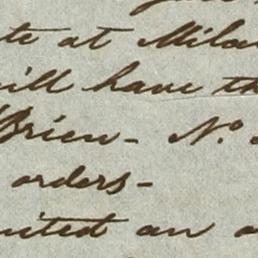 te at Mila
ill have th
Brien - No.
orders -
nited an a